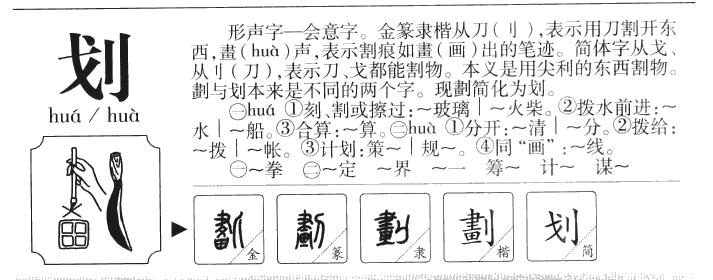 划
huá / huà
形声字—会意字。金篆隶楷从刀(刂),表示用刀割开东
西,畫(huà)声,表示割痕如畫(画)出的笔迹。简体字从戈、
从刂(刀),表示刀、戈都能割物。本义是用尖利的东西割物。
劃与划本来是不同的两个字。现劃简化为划。
㊀huá ①刻、割或擦过:～玻璃｜～火柴。②拨水前进:～
水｜～船。③合算:～算。㊁huà ①分开:～清｜～分。②拨给:
～拨｜～帐。③计划:策～｜规～。④同“画”:～线。
㊀～拳 ㊁～定 ～界 ～一 筹～ 计～ 谋～
劃 金
劃 篆
劃 隶
劃 楷
划 简